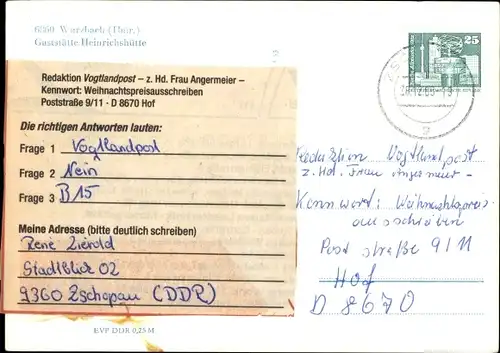 6860 Wurzbach (Thür.)
Gaststätte Heinrichshütte
Redaktion Vogtlandpost – z. Hd. Frau Angermeier –
Kennwort: Weihnachtspreisausschreiben
Poststraße 9/11 · D 8670 Hof
Die richtigen Antworten lauten:
Frage 1 Vogtlandpost
Frage 2 Nein
Frage 3 B 15
Meine Adresse (bitte deutlich schreiben)
René Zierold
Stadtblick 02
9360 Zschopau (DDR)
EVP DDR 0,25 M
25
Redaktion Vogtlandpost
z. Hd. Frau Angermeier -
Kennwort: Weihnachtspreis-
ausschreiben
Post straße 9/11
Hof
D 8670